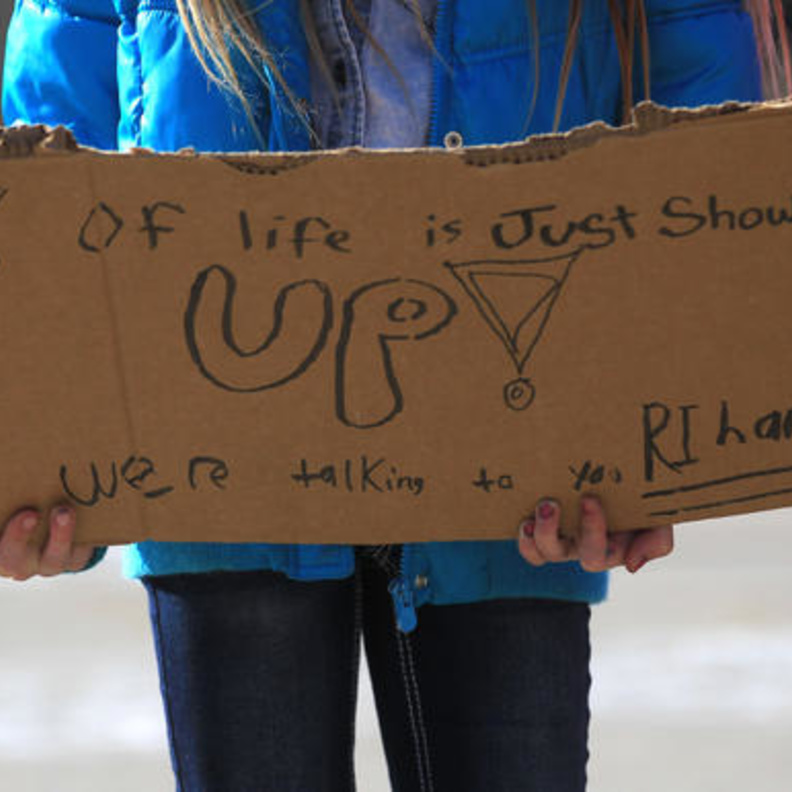 Of life is Just Show
UP!
We_re talking to you RIhan